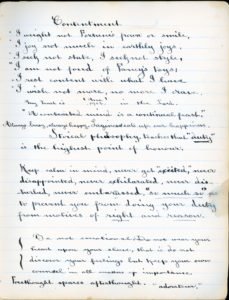 Contentment.
"I weight not Fortune's frown or smile,
"I joy not much in earthly joys,
"I seek not state, I seek not style,
"I am not fond of Fancy's toys;
"I rest content with what I have
"I wish not more, no more I crave.
My trust is in the Lord.
"A contented mind is a continual feast."
Always busy, always happy.
Stoical philosophy teaches that "duty"
is the highest point of honour.
Keep also in mind, never get "excited," never
disappointed, never exhilarated, never dis-
turbed, never embarrassed, "so much so" as
to prevent you from doing your duty
from motives of right and reason.
Do not wear your
heart upon your sleeve, that is do not
discover your feelings but keep your own
counsel in all matters of importance.
Forethought spares afterthought.